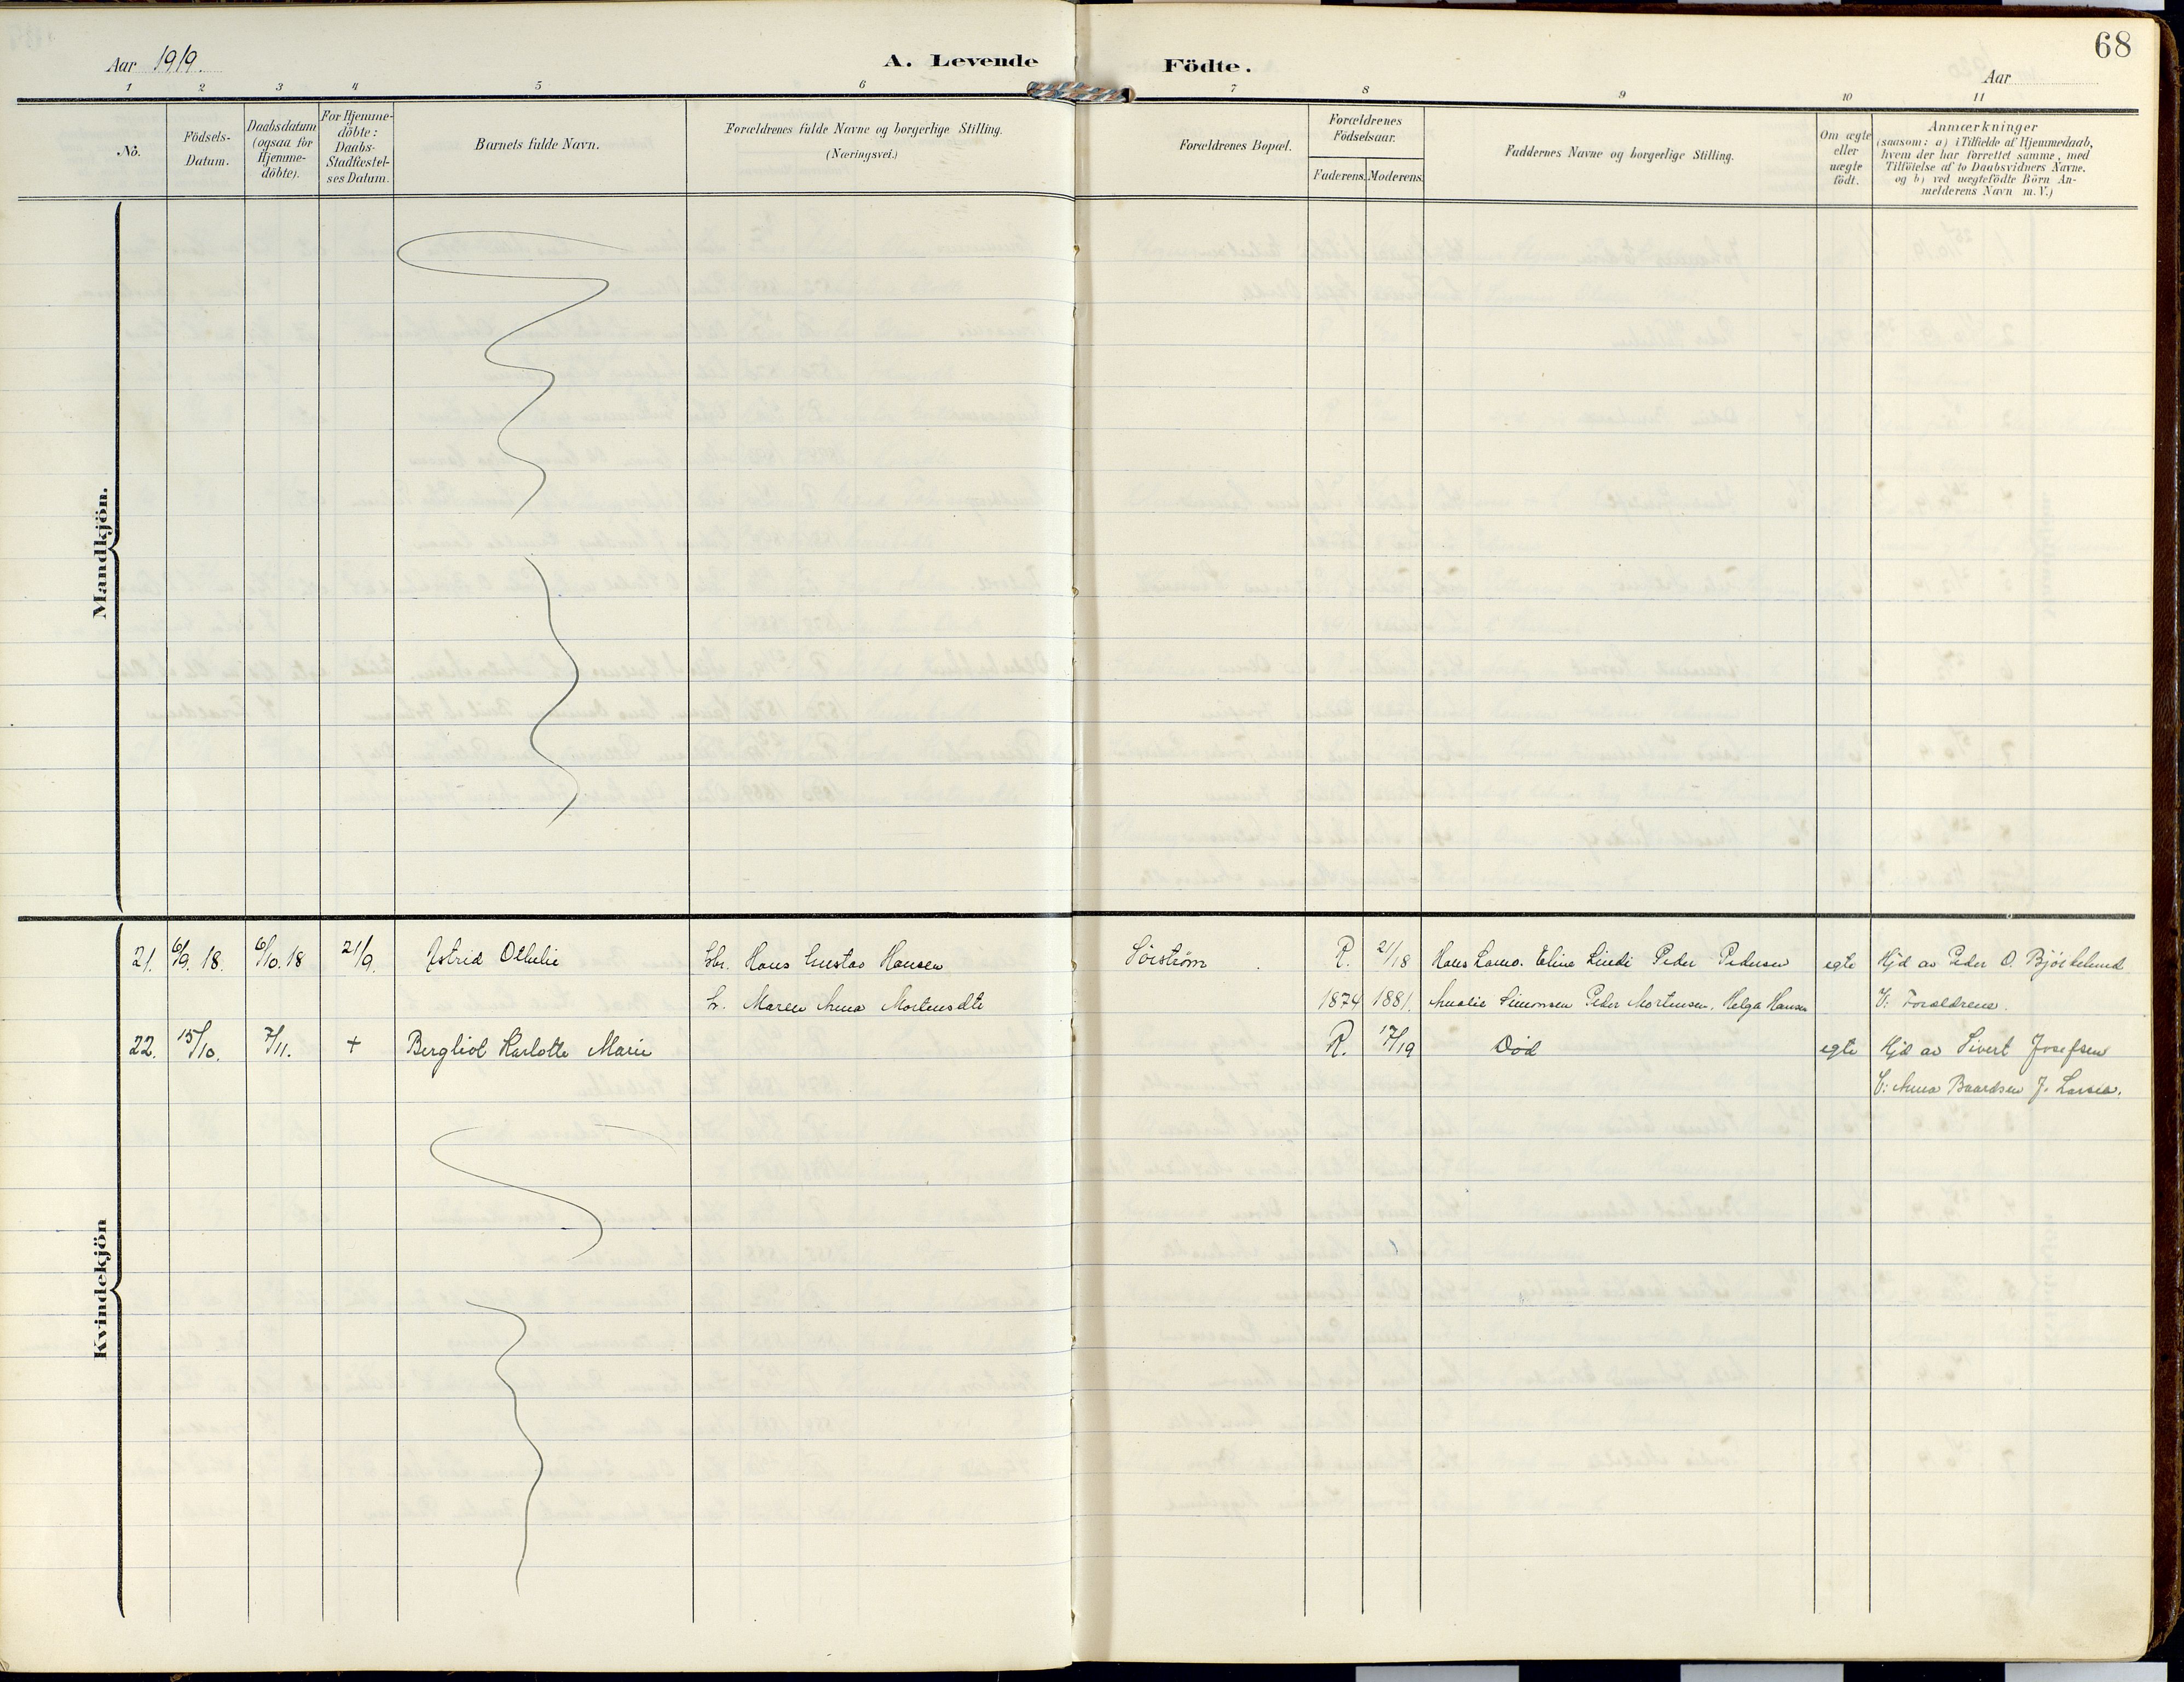 68
Aar 1919.
A. Levende Födte.
Aar
1 2 3 4 5 6 7 8 9 10 11
No.
Födsels-
Datum.
Daabsdatum
(ogsaa for
Hjemme-
döbte).
For Hjemme-
döbte:
Daabs-
Stadfæstel-
ses Datum.
Barnets fulde Navn.
Forældrenes fulde Navne og borgerlige Stilling.
(Næringsvei.)
Forældrenes Bopæl.
Forældrenes
Födselsaar.
Faderens. Moderens.
Faddernes Navne og borgerlige Stilling.
Om ægte
eller
uægte
födt.
Anmærkninger
(saasom: a) i Tilfælde af Hjemmedaab,
hvem der har forrettet samme, med
Tilföielse af to Daabsvidners Navne.
og b) ved uægtefödte Börn An-
melderens Navn m. V.)
Mandkjön.
Kvindekjön
21. 6/9. 18. 6/10. 18 21/9. Astrid Othelie Gbr. Hans Gustav Hansen Sörström R. 21/18 Hans Lamo. Eline Lindi Peder Pedersen egte Hjd av Peder O. Björkelund
H. Maren Anna Mortensdte 1874 1881. Amalie Simonsen Peder Mortensen. Helga Hansen V: Forældrene.
22. 15/10. 7/11. + Bergliot Karlotte Marie R. 17/19 Död egte Hjd av Sivert Josefsen
V: Anna Baardsen J. Larsen.